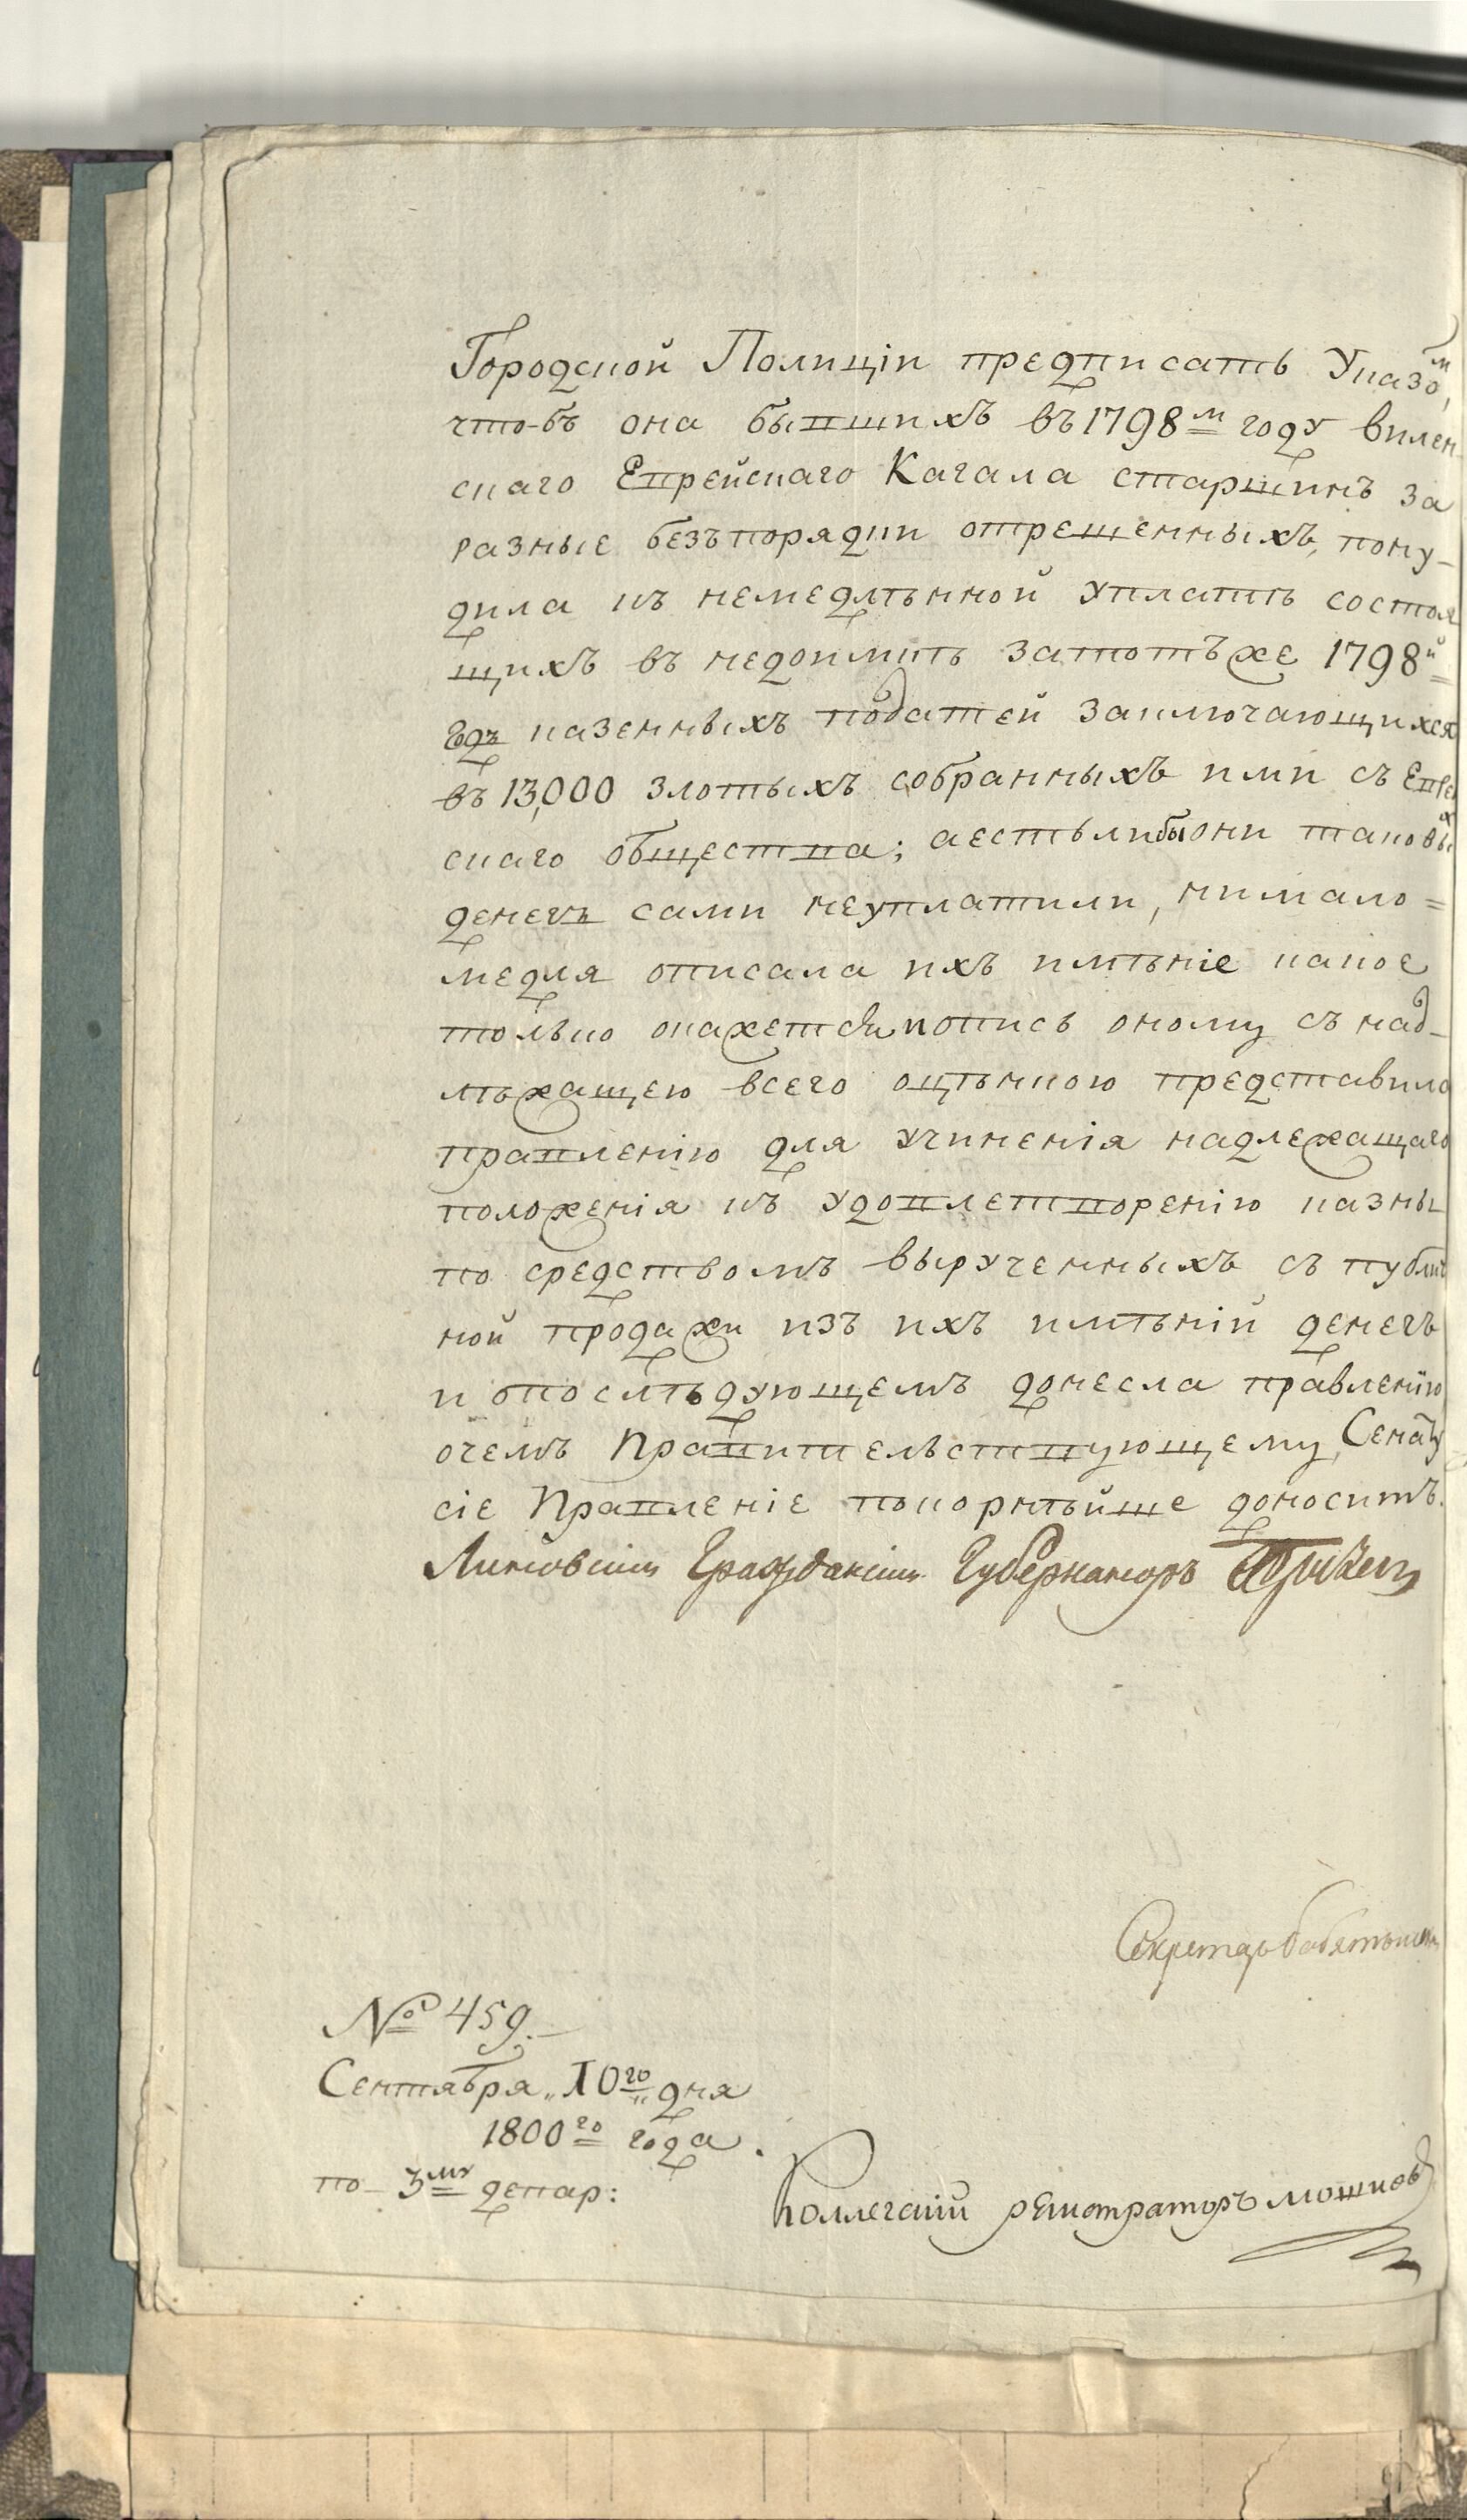 Городской Полиціи предписать Указомъ,
что-бъ она бывшихъ въ 1798м году вилен
скаго Еврейскаго Кагала старшинъ за
разные безъпорядки отрешенныхъ, пону-
дила къ немедлѣнной уплатѣ состоя
щихъ въ недоимкѣ затотъже 1798й
годъ казенныхъ податей заключающихся
въ 13,000 злотыхъ собранныхъ ими съ Еврей
скаго общества; аестьлибы они таковыхъ
денегъ сами неуплатили, нимало=
медля описала ихъ имѣніе какое
только окажется и опись оному съ над-
лѣжащею всего оцѣнкою представила
правленію для учиненія надлежащаго
положенія къ удовлетворенію казны
по средствомъ вырученныхъ съ публич
ной продажи изъ ихъ имѣній денегъ
и опослѣдующемъ донесла правленію
очемъ Правительствующему Сенату
сіе Правленіе покорнѣйше доноситъ.
Литовскій Гражданскій Губернаторъ
Секретарь
№ 459.
Сентября „10го„ дня
1800го года.
по 3му депар:
Коллегскій регистраторъ Мошковъ